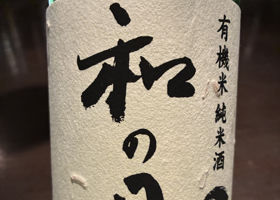 有機米純米酒
和の